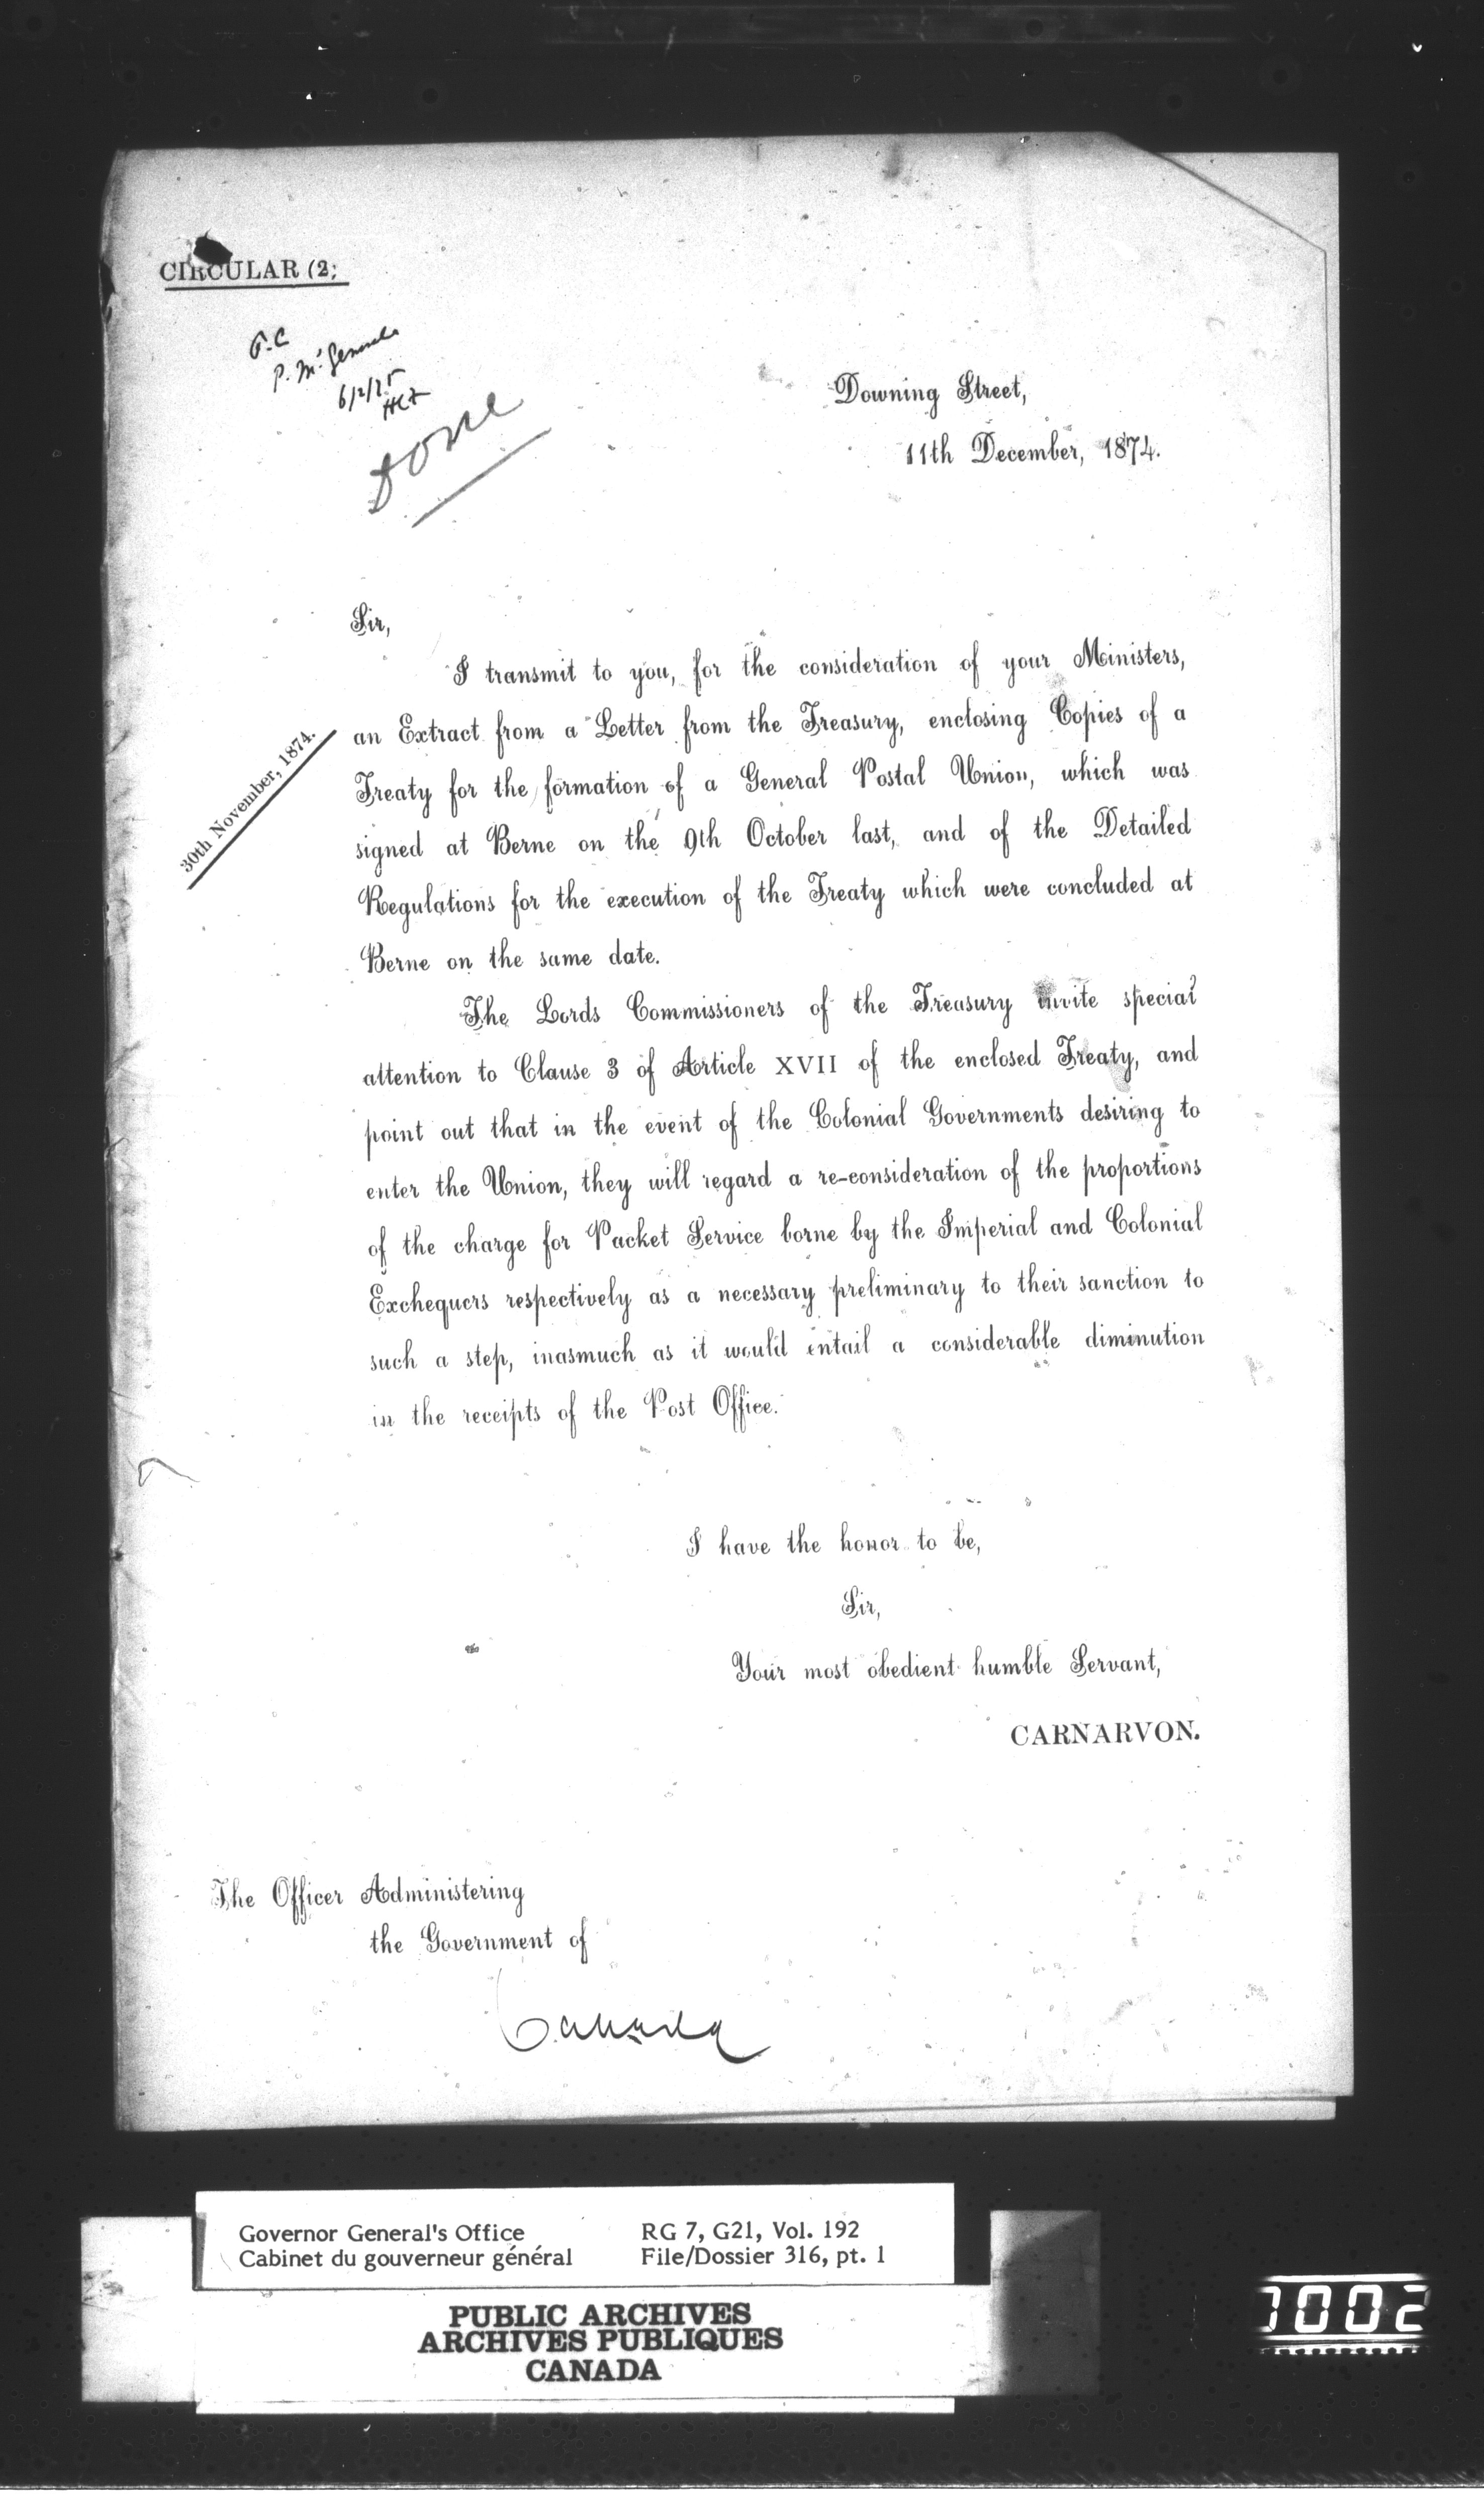 CIRCULAR (2;
P. Mr General
6/2/75
Done
Downing Street,
11th December, 1874.
Sir,
I transmit to you, for the consideration of your Ministers,
30th November, 1874.
an Extract from a Letter from the Treasury, enclosing Copies of a
Treaty for the formation of a General Postal Union, which was
signed at Berne on the 9th October last, and of the Detailed
Regulations for the execution of the Treaty which were concluded at
Berne on the same date.
The Lords Commissioners of the Treasury invite special
attention to Clause 3 of Article XVII of the enclosed Treaty, and
point out that in the event of the Colonial Governments desiring to
enter the Union, they will regard a re-consideration of the proportions
of the charge for Packet Service borne by the Imperial and Colonial
Exchequers respectively as a necessary preliminary to their sanction to
such a step, inasmuch as it would entail a considerable diminution
in the receipts of the Post Office.
I have the honor to be,
Sir,
Your most obedient humble Servant,
CARNARVON.
The Officer Administering
the Government of
Canada
Governor General's Office
Cabinet du gouverneur général
RG 7, G21, Vol. 192
File/Dossier 316, pt. 1
PUBLIC ARCHIVES
ARCHIVES PUBLIQUES
CANADA
1002